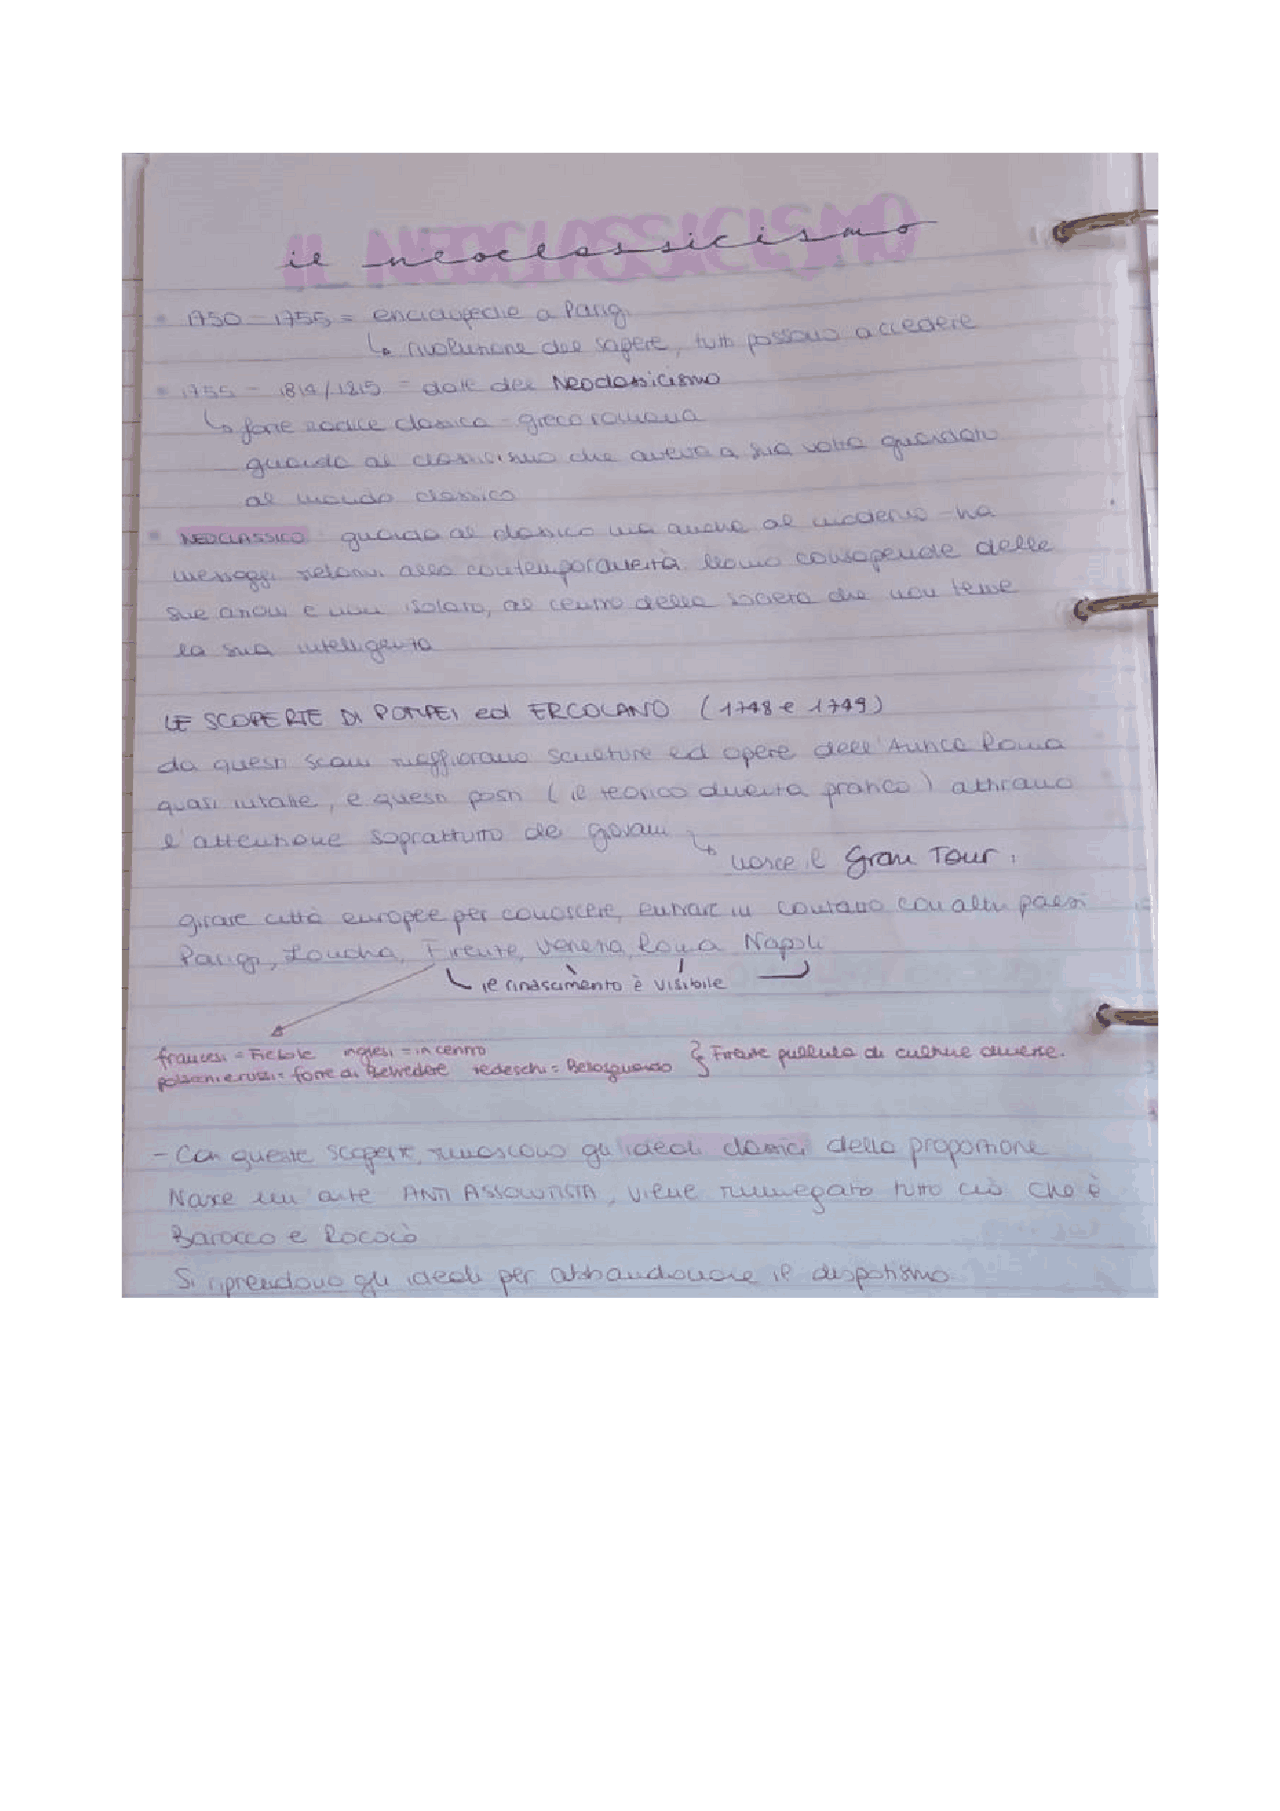 IL NEOCLASSICISMO
il neoclassicismo
1750 - 1755 = enciclopedie a Parigi
↳ rivoluzione del sapere, tutti possono accedere
1755 - 1814/1815 = date del Neoclassicismo
↳ forte radice classica - greco romana
guarda al classicismo che aveva a sua volta guardato
al mondo classico
NEOCLASSICO: guarda al classico ma anche al moderno - ha
messaggi relativi alla contemporaneità. Uomo consapevole delle
sue azioni e non isolato, al centro della società che non teme
la sua intelligenza
LE SCOPERTE DI POMPEI ed ERCOLANO (1748 e 1749)
da questi scavi riaffiorano sculture ed opere dell'Antica Roma
quasi intatte, e questi posti (il teorico diventa pratico) attirano
l'attenzione soprattutto dei giovani
↳ nasce il Gran Tour:
girare città europee per conoscere, entrare in contatto con altri paesi
Parigi, Londra, Firenze, Venezia, Roma Napoli
il rinascimento è visibile
francesi = Fiesole inglesi = in centro } Firenze pullula di culture diverse.
forte di Belvedere tedeschi = Bellosguardo
- Con queste scoperte, rinascono gli ideali classici della proporzione
Nasce un arte ANTI ASSOLUTISTA, viene rinnegato tutto ciò che è
Barocco e Rococò
Si riprendono gli ideali per abbandonare il dispotismo